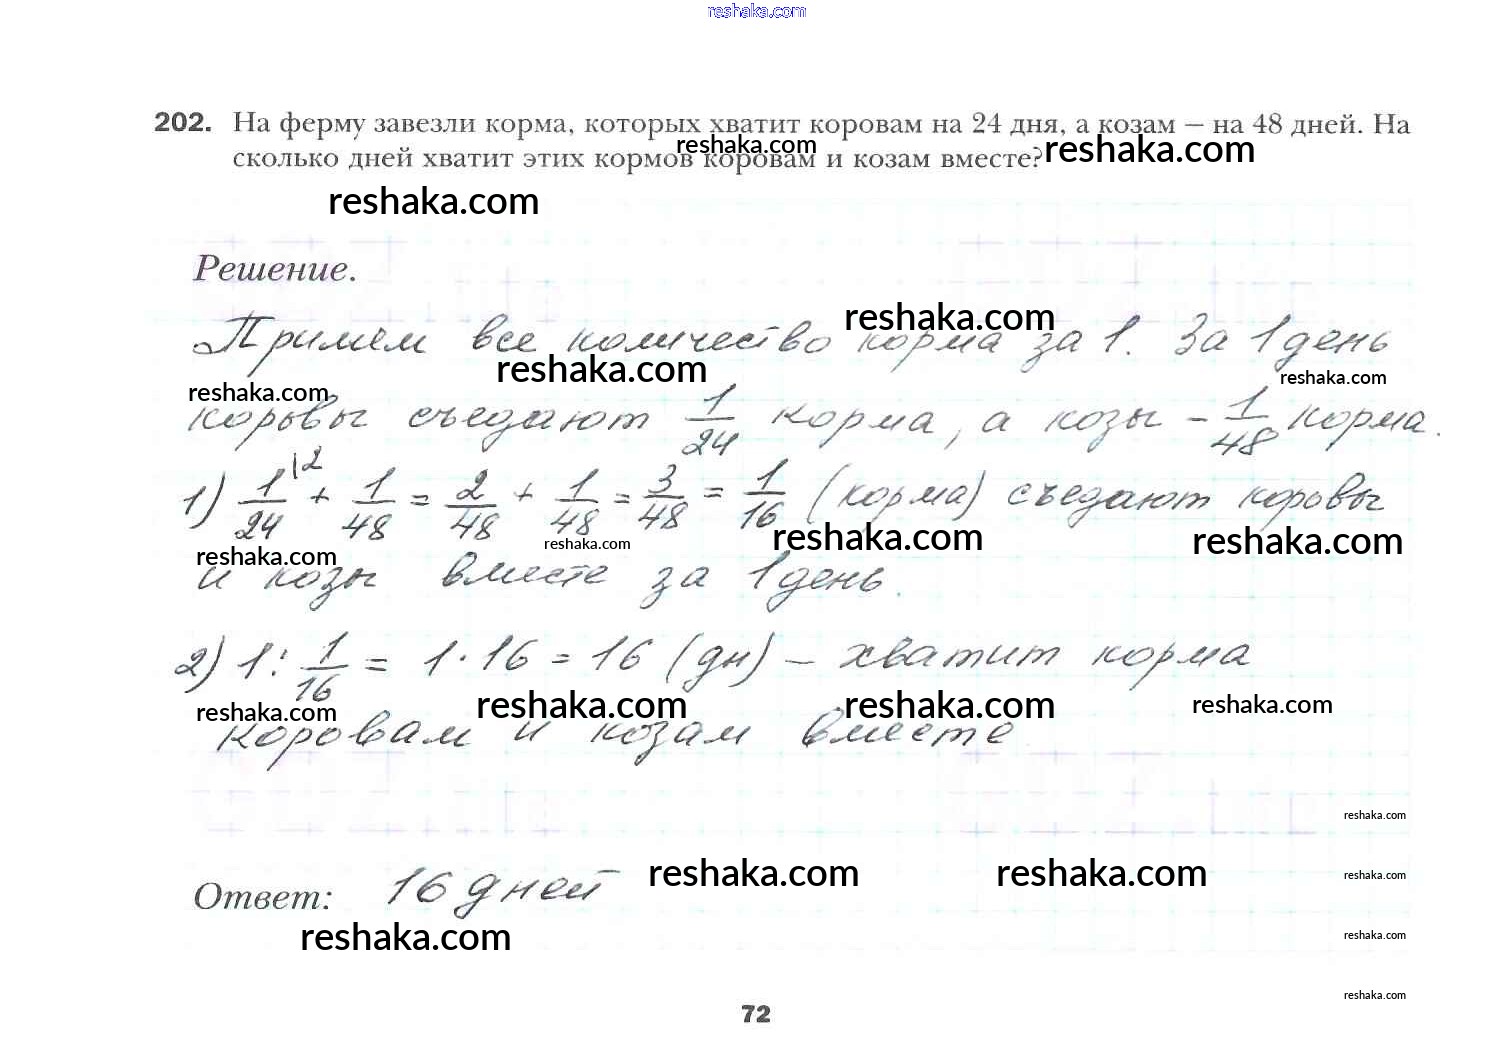 reshaka.com
202. На ферму завезли корма, которых хватит коровам на 24 дня, а козам – на 48 дней. На
reshaka.com
сколько дней хватит этих кормов коровам и козам вместе?
reshaka.com
reshaka.com
Решение.
reshaka.com
Примем все количество корма за 1. За 1 день
reshaka.com
reshaka.com
reshaka.com
коровы съедают 1/24 корма, а козы – 1/48 корма.
1) 1/24 |2 + 1/48 = 2/48 + 1/48 = 3/48 = 1/16 (корма) съедают коровы
reshaka.com
reshaka.com
reshaka.com
reshaka.com
и козы вместе за 1 день.
2) 1 : 1/16 = 1 · 16 = 16 (дн) – хватит корма
reshaka.com
reshaka.com
reshaka.com
reshaka.com
коровам и козам вместе
reshaka.com
reshaka.com
reshaka.com
reshaka.com
Ответ: 16 дней
reshaka.com
reshaka.com
reshaka.com
72